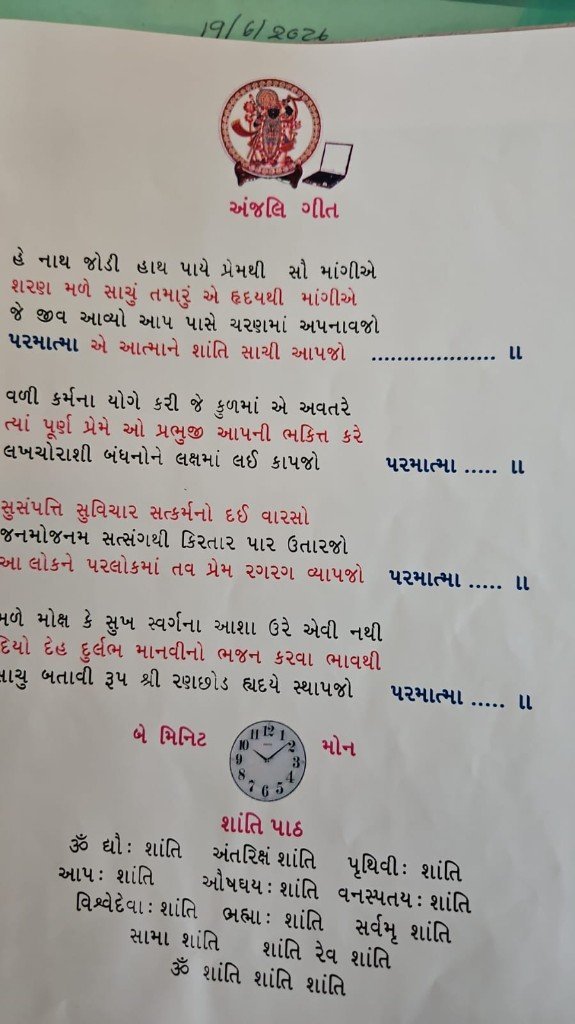 19/6/2026
અંજલિ ગીત
હે નાથ જોડી હાથ પાયે પ્રેમથી સૌ માંગીએ
શરણ મળે સાચું તમારું એ હૃદયથી માંગીએ
જે જીવ આવ્યો આપ પાસે ચરણમાં અપનાવજો
પરમાત્મા એ આત્માને શાંતિ સાચી આપજો ................... ॥
વળી કર્મના યોગે કરી જે કુળમાં એ અવતરે
ત્યાં પૂર્ણ પ્રેમે ઓ પ્રભુજી આપની ભકિત્ત કરે
લખચોરાશી બંધનોને લક્ષમાં લઈ કાપજો પરમાત્મા ..... ॥
સુસંપત્તિ સુવિચાર સત્કર્મનો દઈ વારસો
જનમોજનમ સત્સંગથી કિરતાર પાર ઉતારજો
આ લોકને પરલોકમાં તવ પ્રેમ રગરગ વ્યાપજો પરમાત્મા ..... ॥
મળે મોક્ષ કે સુખ સ્વર્ગના આશા ઉરે એવી નથી
દિયો દેહ દુર્લભ માનવીનો ભજન કરવા ભાવથી
સાચુ બતાવી રૂપ શ્રી રણછોડ હ્યદયે સ્થાપજો પરમાત્મા ..... ॥
બે મિનિટ મોન
12 1 2 3 4 5 6 7 8 9 10 11
શાંતિ પાઠ
ૐ દ્યૌઃ શાંતિ અંતરિક્ષં શાંતિ પૃથિવીઃ શાંતિ
આપઃ શાંતિ ઔષધયઃ શાંતિ વનસ્પતયઃ શાંતિ
વિશ્વેદેવાઃ શાંતિ ભહ્માઃ શાંતિ સર્વમૃ શાંતિ
સામા શાંતિ શાંતિ રેવ શાંતિ
ૐ શાંતિ શાંતિ શાંતિ